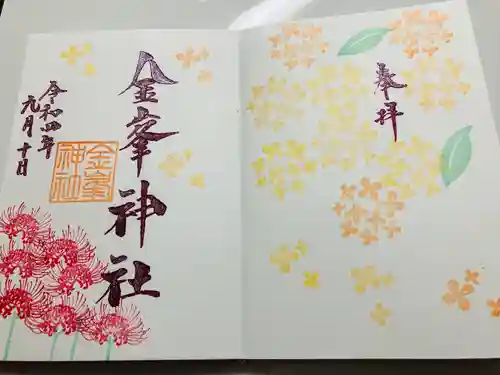 奉拝
金峯神社
金峯
神社
令和四年
九月十日